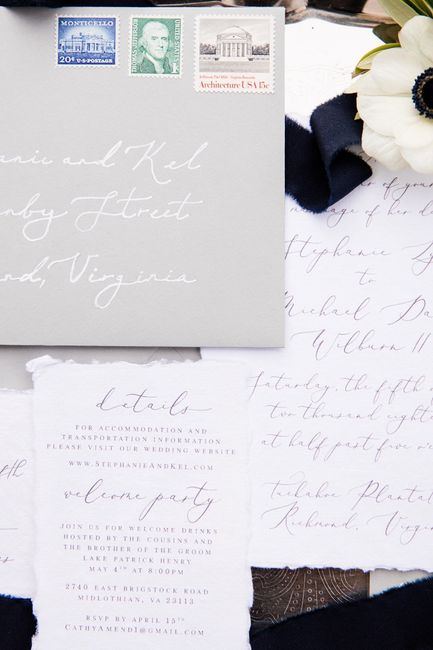 MONTICELLO
20¢ U.S. POSTAGE
THOMAS JEFFERSON
UNITED STATES
1¢
Architecture USA 15c
and Kel
Street
Virginia
of your
marriage of her
Stephanie
to
Michael
Wilburn II
Saturday, the fifth
two thousand
at half past five
Tuckahoe
Richmond,
details
FOR ACCOMMODATION AND
TRANSPORTATION INFORMATION
PLEASE VISIT OUR WEDDING WEBSITE
WWW.STEPHANIEANDKEL.COM
welcome party
JOIN US FOR WELCOME DRINKS
HOSTED BY THE COUSINS AND
THE BROTHER OF THE GROOM
LAKE PATRICK HENRY
MAY 4TH AT 8:00PM
2740 EAST BRIGSTOCK ROAD
MIDLOTHIAN, VA 23113
RSVP BY APRIL 15TH
CATHYAMEND1@GMAIL.COM